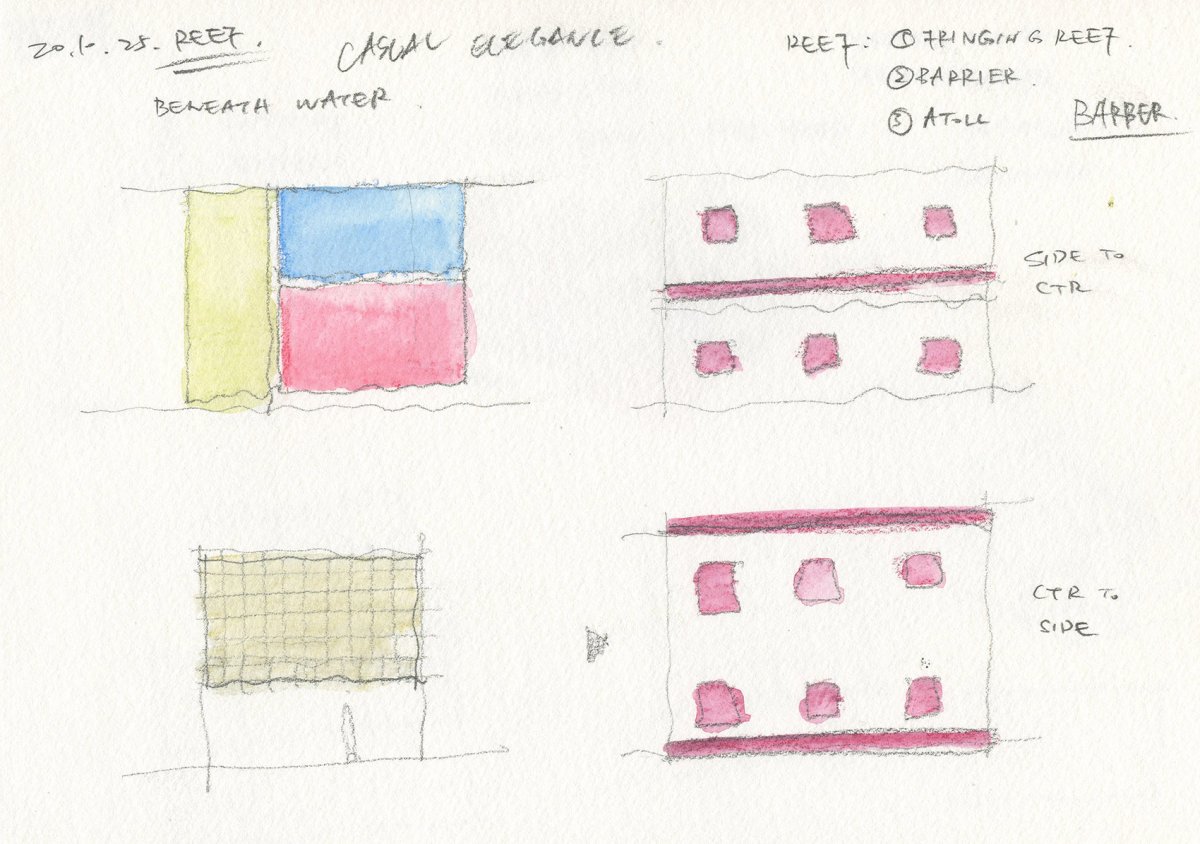 20.10.25. REEF.
CASUAL ELEGANCE.
BENEATH WATER.
REEF: ① FRINGING REEF.
② BARRIER.
③ ATOLL
BARBER.
SIDE TO
CTR
CTR TO
SIDE